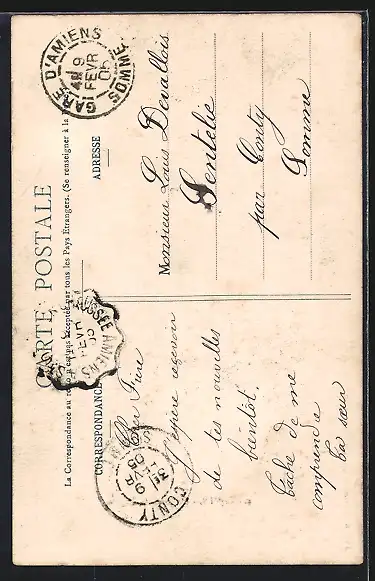 CARTE POSTALE
La Correspondance au recto n'est pas acceptée par tous les Pays Étrangers. (Se renseigner à la
CORRESPONDANCE
Cher Frère
J'espère recevoir
de tes nouvelles
bientôt.
Tâche de me
comprendre
Ta sœur
ADRESSE
Monsieur Louis Devallois
Sentelie
par Conty
Somme
GARE D'AMIENS
SOMME
9
FEVR
05
AMIENS
FEVR
05
CONTY
9
05